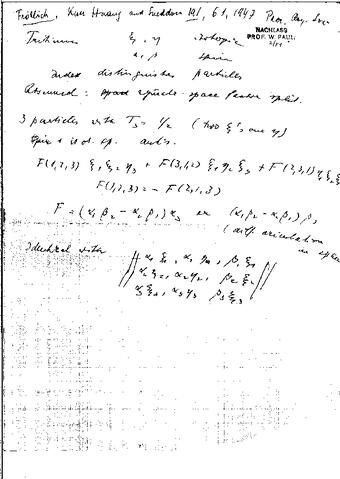 Fröhlich, Kun Huang and Sneddon 191, 61, 1947 Proc. Roy. Soc.
NACHLASS
PROF. W. PAULI
Tritium ξ, η isotopic
α, β spin
Index distinguishes particles
Assumed: space factor split.
3 particles with T₃ = 1/2 (two ξ's one η)
F(1,2,3) ξ₁ξ₂η₃ + F(3,1,2) ξ₁η₂ξ₃ + F(2,3,1) η₁ξ₂ξ₃
F(1,2,3) = − F(2,1,3)
F = (α₁β₂ − α₂β₁) α₃ or (α₁β₂ − α₂β₁) β₃
Identical with
|| α₁ξ₁, α₁η₁, β₁ξ₁ ||
α₂ξ₂, α₂η₂, β₂ξ₂
α₃ξ₃, α₃η₃, β₃ξ₃